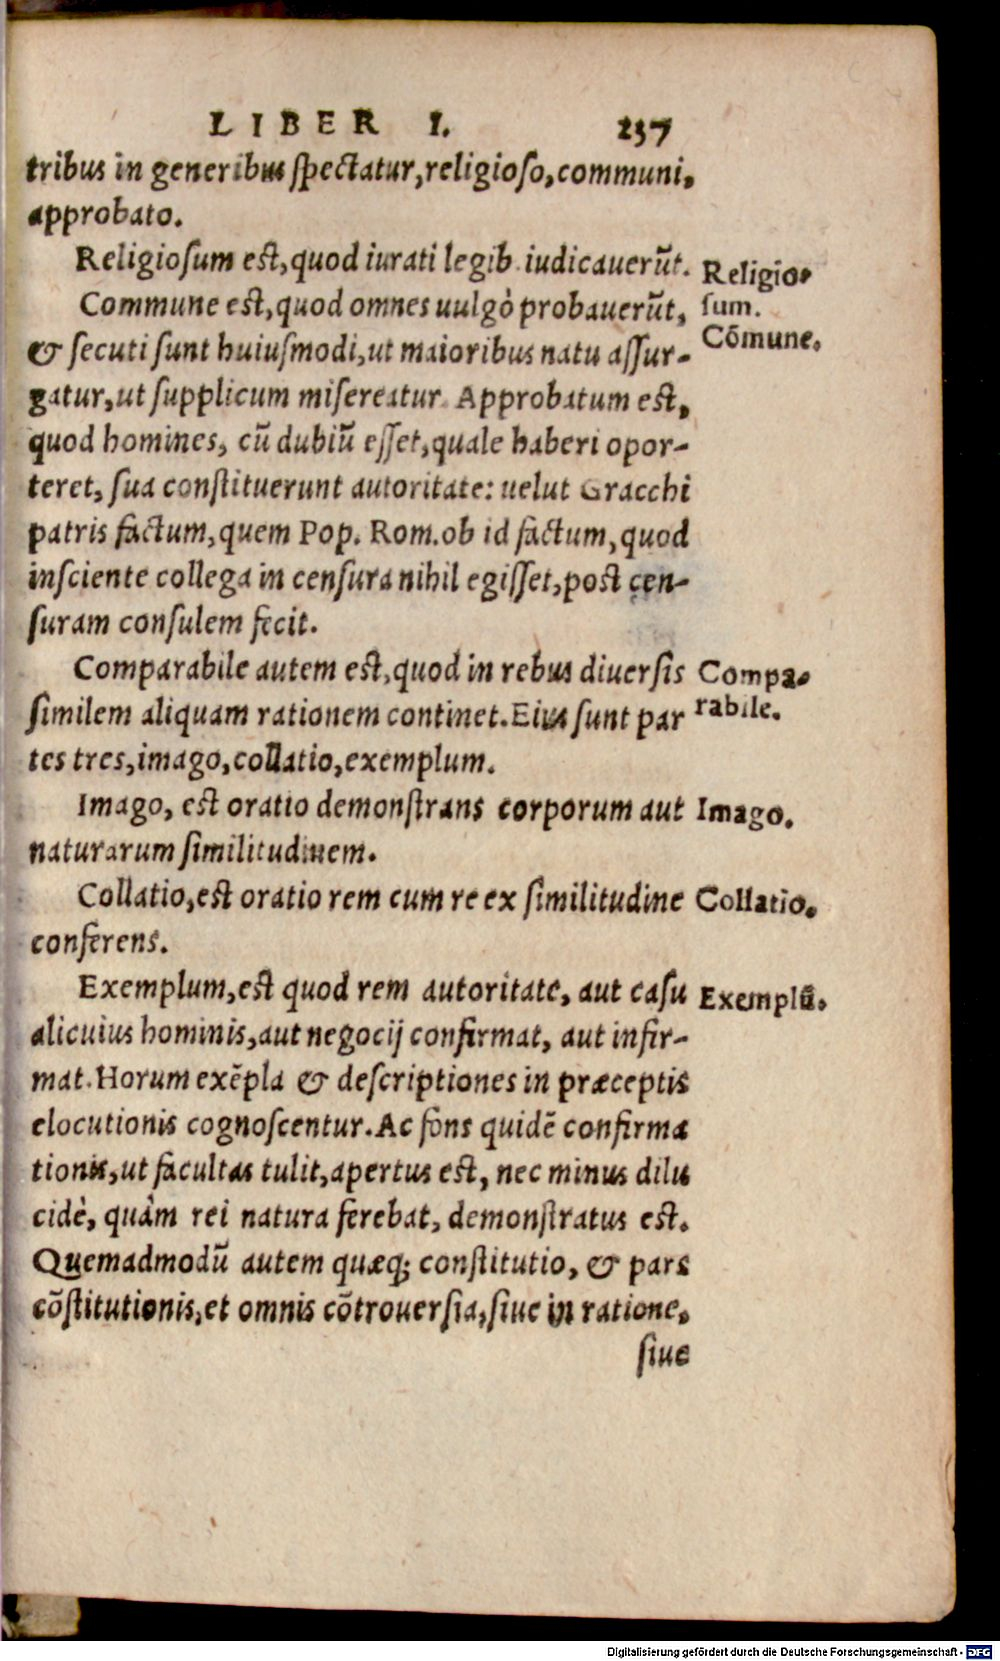 LIBER I. 237
tribus in generibus spectatur, religioso, communi,
approbato.
Religiosum est, quod iurati legib. iudicauerūt.
Religio-
sum.
Commune est, quod omnes uulgò probauerūt,
Cōmune.
& secuti sunt huiusmodi, ut maioribus natu assur-
gatur, ut supplicum misereatur. Approbatum est,
quod homines, cū dubiū esset, quale haberi opor-
teret, sua constituerunt autoritate: uelut Gracchi
patris factum, quem Pop. Rom. ob id factum, quod
insciente collega in censura nihil egisset, post cen-
suram consulem fecit.
Comparabile autem est, quod in rebus diuersis
Compa-
rabile.
similem aliquam rationem continet. Eius sunt par
tes tres, imago, collatio, exemplum.
Imago, est oratio demonstrans corporum aut
Imago.
naturarum similitudinem.
Collatio, est oratio rem cum re ex similitudine
Collatio.
conferens.
Exemplum, est quod rem autoritate, aut casu
Exemplū.
alicuius hominis, aut negocij confirmat, aut infir-
mat. Horum exēpla & descriptiones in præceptis
elocutionis cognoscentur. Ac fons quidē confirma
tionis, ut facultas tulit, apertus est, nec minus dilu
cidè, quàm rei natura ferebat, demonstratus est.
Quemadmodū autem quæq; constitutio, & pars
cōstitutionis, et omnis cōtrouersia, siue in ratione,
siue
Digitalisierung gefördert durch die Deutsche Forschungsgemeinschaft - DFG